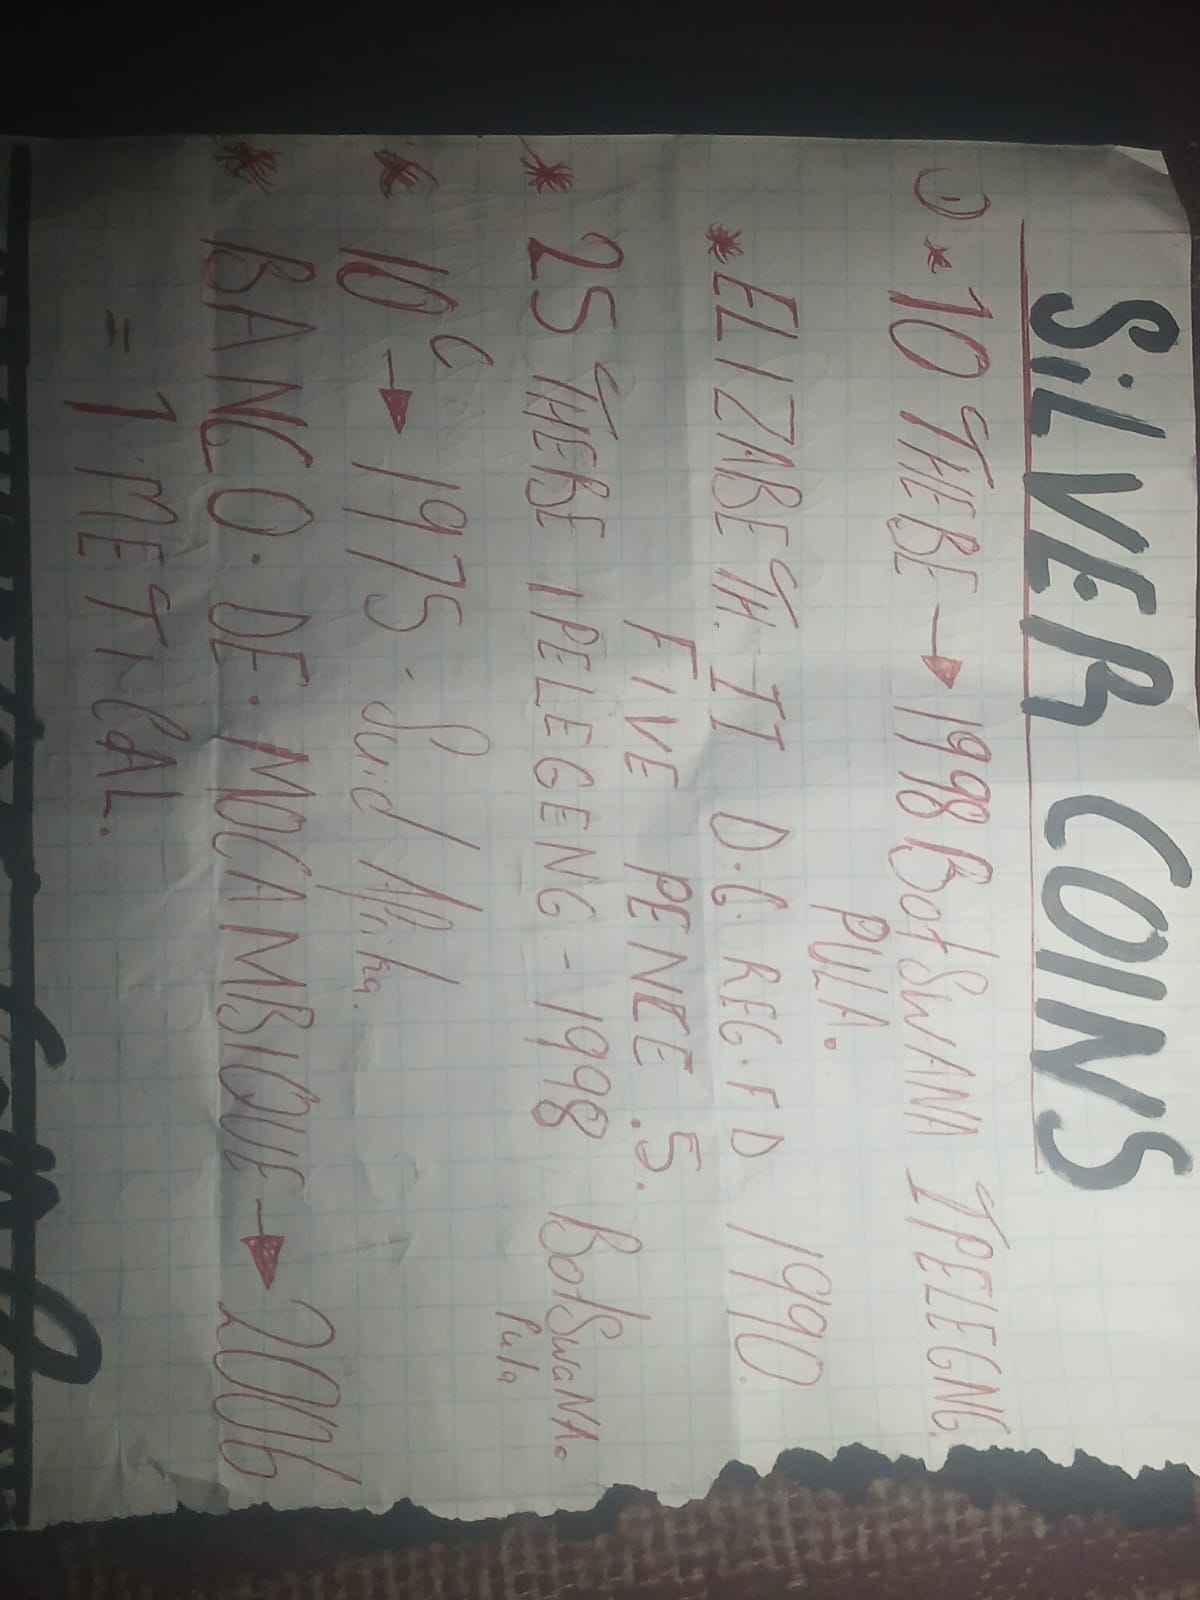 SILVER COINS
1) * 10 THEBE → 1998 BotSWANA IPELEGNG.
PULA.
* ELIZABETH. II D.G. REG. F D 1990.
FIVE PENEE .5.
* 25 THEBE IPELEGENG - 1998 BotSwaNA.
Pula
* 10c → 1975 . Suid Afrika.
* BANCO. DE. MOCAMBIQUE → 2006
= 1 METICAL.